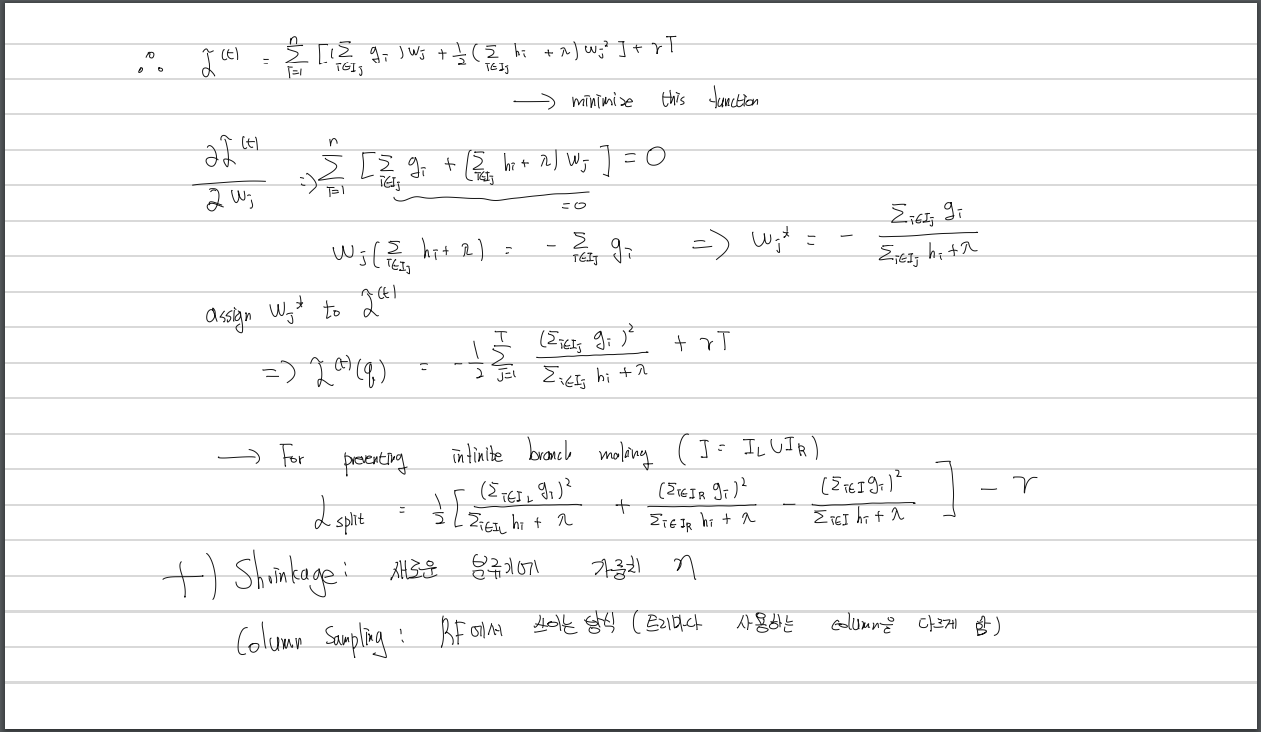 ∴ L̃^(t) = Σ_{i=1}^{n} [(Σ_{i∈I_j} g_i) w_j + 1/2 (Σ_{i∈I_j} h_i + λ) w_j²] + γT
→ minimize this function
∂L̃^(t) / ∂w_j ⇒ Σ_{i=1}^{n} [Σ_{i∈I_j} g_i + (Σ_{i∈I_j} h_i + λ) w_j] = 0
= 0
w_j (Σ_{i∈I_j} h_i + λ) = - Σ_{i∈I_j} g_i ⇒ w_j* = - Σ_{i∈I_j} g_i / (Σ_{i∈I_j} h_i + λ)
assign w_j* to L̃^(t)
⇒ L̃^(t)(q) = -1/2 Σ_{j=1}^{T} (Σ_{i∈I_j} g_i)² / (Σ_{i∈I_j} h_i + λ) + γT
→ For preventing infinite branch making (I = I_L ∪ I_R)
L_split = 1/2 [(Σ_{i∈I_L} g_i)² / (Σ_{i∈I_L} h_i + λ) + (Σ_{i∈I_R} g_i)² / (Σ_{i∈I_R} h_i + λ) - (Σ_{i∈I} g_i)² / (Σ_{i∈I} h_i + λ)] - γ
+) Shrinkage: 새로운 분류기에 가중치 η
Column Sampling: RF에서 쓰이는 방식 (트리마다 사용하는 column을 다르게 함)